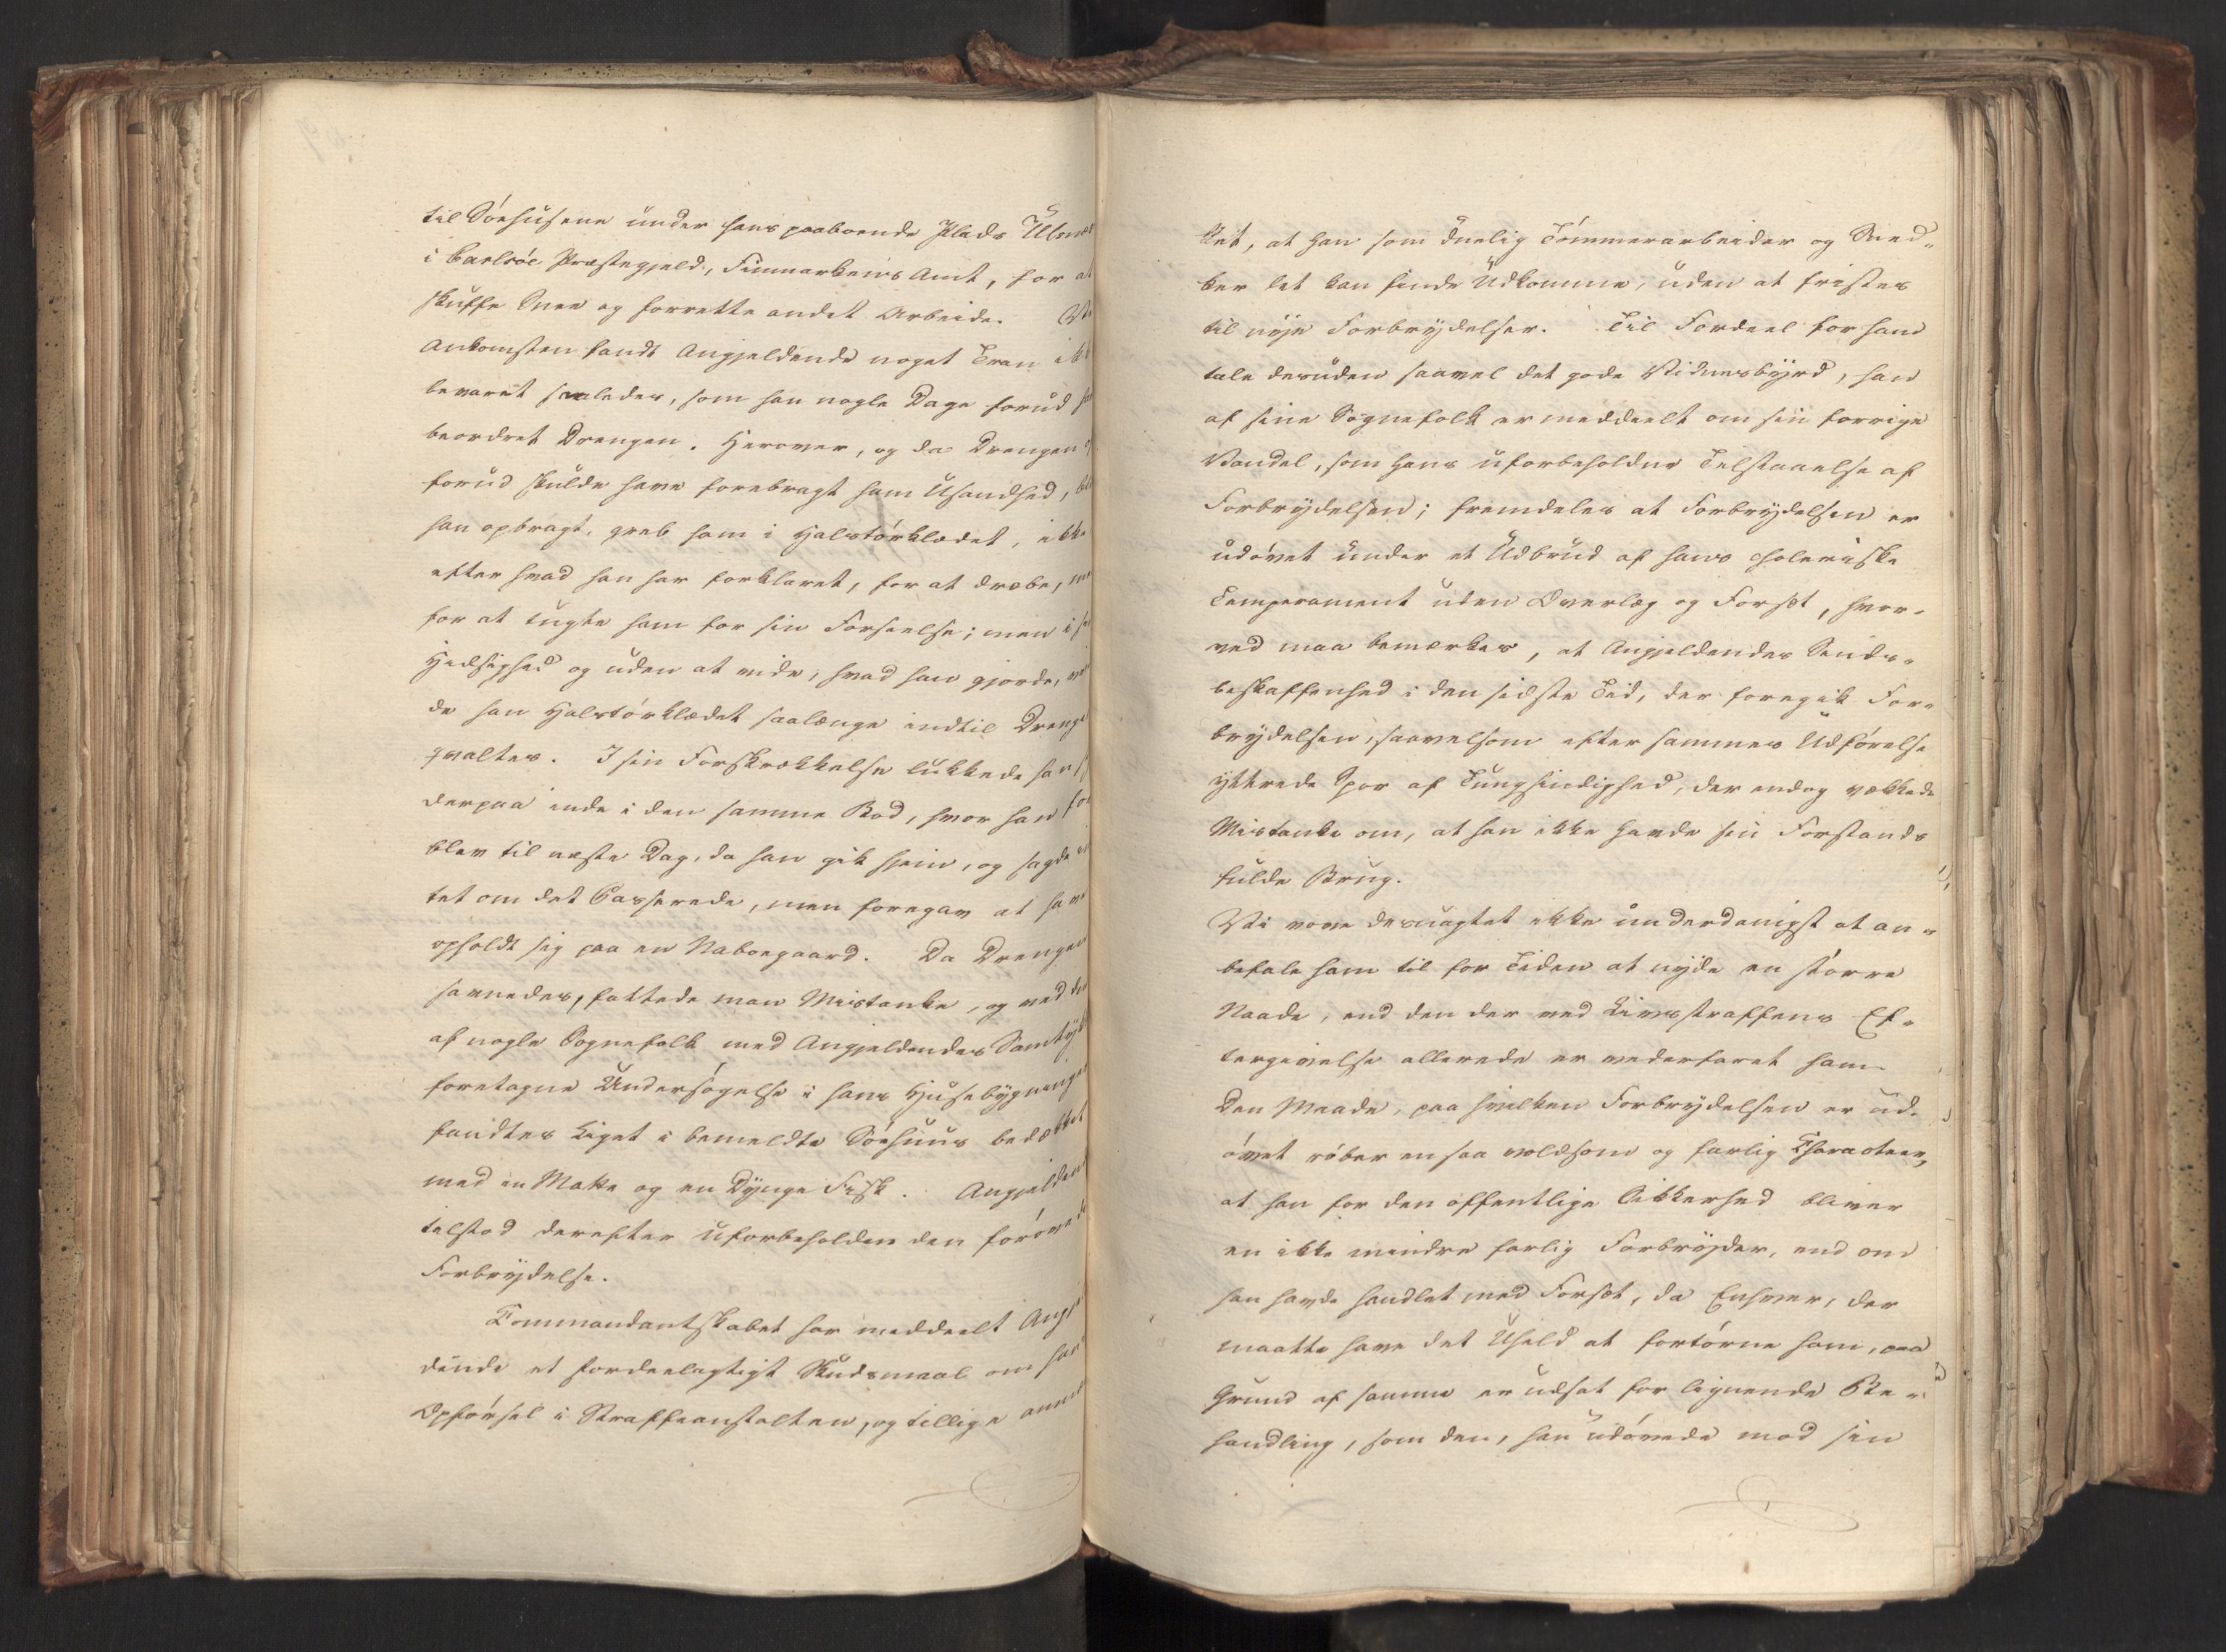 til Söehusene under hans paaboende Plads Ulsnæs
i Carlsöe Præstegjeld, Finmarkens Amt, for at
skuffe Snee og forrette andet Arbeide. Ve
Ankomsten fandt Angjeldende noget Tran ikk
bevaret saaledes, som han nogle Dage forud ha
beordret Drengen. Herover, og da Drengen og
forud skulde have forebragt ham Usandhed, ble
han opbragt, greb ham i Halstörklædet, ikke
efter hvad han har forklaret, for at dræbe, me
for at tugte ham for sin Forseelse; men i si
Hidsighed og uden at vide, hvad han gjorde, vri
de han Halstörklædet saalænge indtil Drenge
qvaltes. I sin Forskrækkelse lukkede han si
derpaa inde i den samme Bod, hvor han for
blev til næste Dag, da han gik hjem, og sagde in
tet om det Passerede, men foregav at have
opholdt sig paa en Naboegaard. Da Drengen
savnedes, fattede man Mistanke, og ved den
af nogle Sognefolk med Angjeldendes Samtyk
foretagne Undersögelse i hans Huusebygninger
fandtes Liget i bemeldte Söehuus bedækket
med en Matte og en Dynge Fisk. Angjelden
tilstod derefter uforbeholden den forövede
Forbrydelse.
Commandantskabet har meddeelt Angjel
dende et fordeelagtigt Skudsmaal om hans
Opförsel i Straffeanstalten, og tillige anmær
ket, at han som duelig Tömmerarbeider og Sned-
ker let kan finde Udkomme, uden at fristes
til nye Forbrydelser. Til Fordeel for ham
tale desuden saavel det gode Vidnesbyrd, han
af sine Sognefolk er meddeelt om sin forrige
Vandel, som hans uforbeholdne Tilstaaelse af
Forbrydelsen; fremdeles at Forbrydelsen er
udövet under et Udbrud af hans choleriske
Temperament uden Overlæg og Forsæt, hvor-
ved maa bemærkes, at Angjeldendes Sinds-
beskaffenhed i den sidste Tid, der foregik For-
brydelsen, saavelsom efter sammes Udförelse
yttrede Spor af Tungsindighed, der endog vækkede
Mistanke om, at han ikke havde sin Forstands
fulde Brug.
Vi vove desuagtet ikke underdanigst at an-
befale ham til for Tiden at nyde en större
Naade, end den der ved Livsstraffens Ef-
tergivelse allerede er vederfaret ham.
Den Maade, paa hvilken Forbrydelsen er ud-
övet röber en saa voldsom og farlig Characteer,
at han for den offentlige Sikkerhed bliver
en ikke mindre farlig Forbryder, end om
han havde handlet med Forsæt, da Enhver, der
maatte have det Uheld at fortörne ham, paa
Grund af samme er udsat for lignende Be-
handling, som den, han udövede mod sin